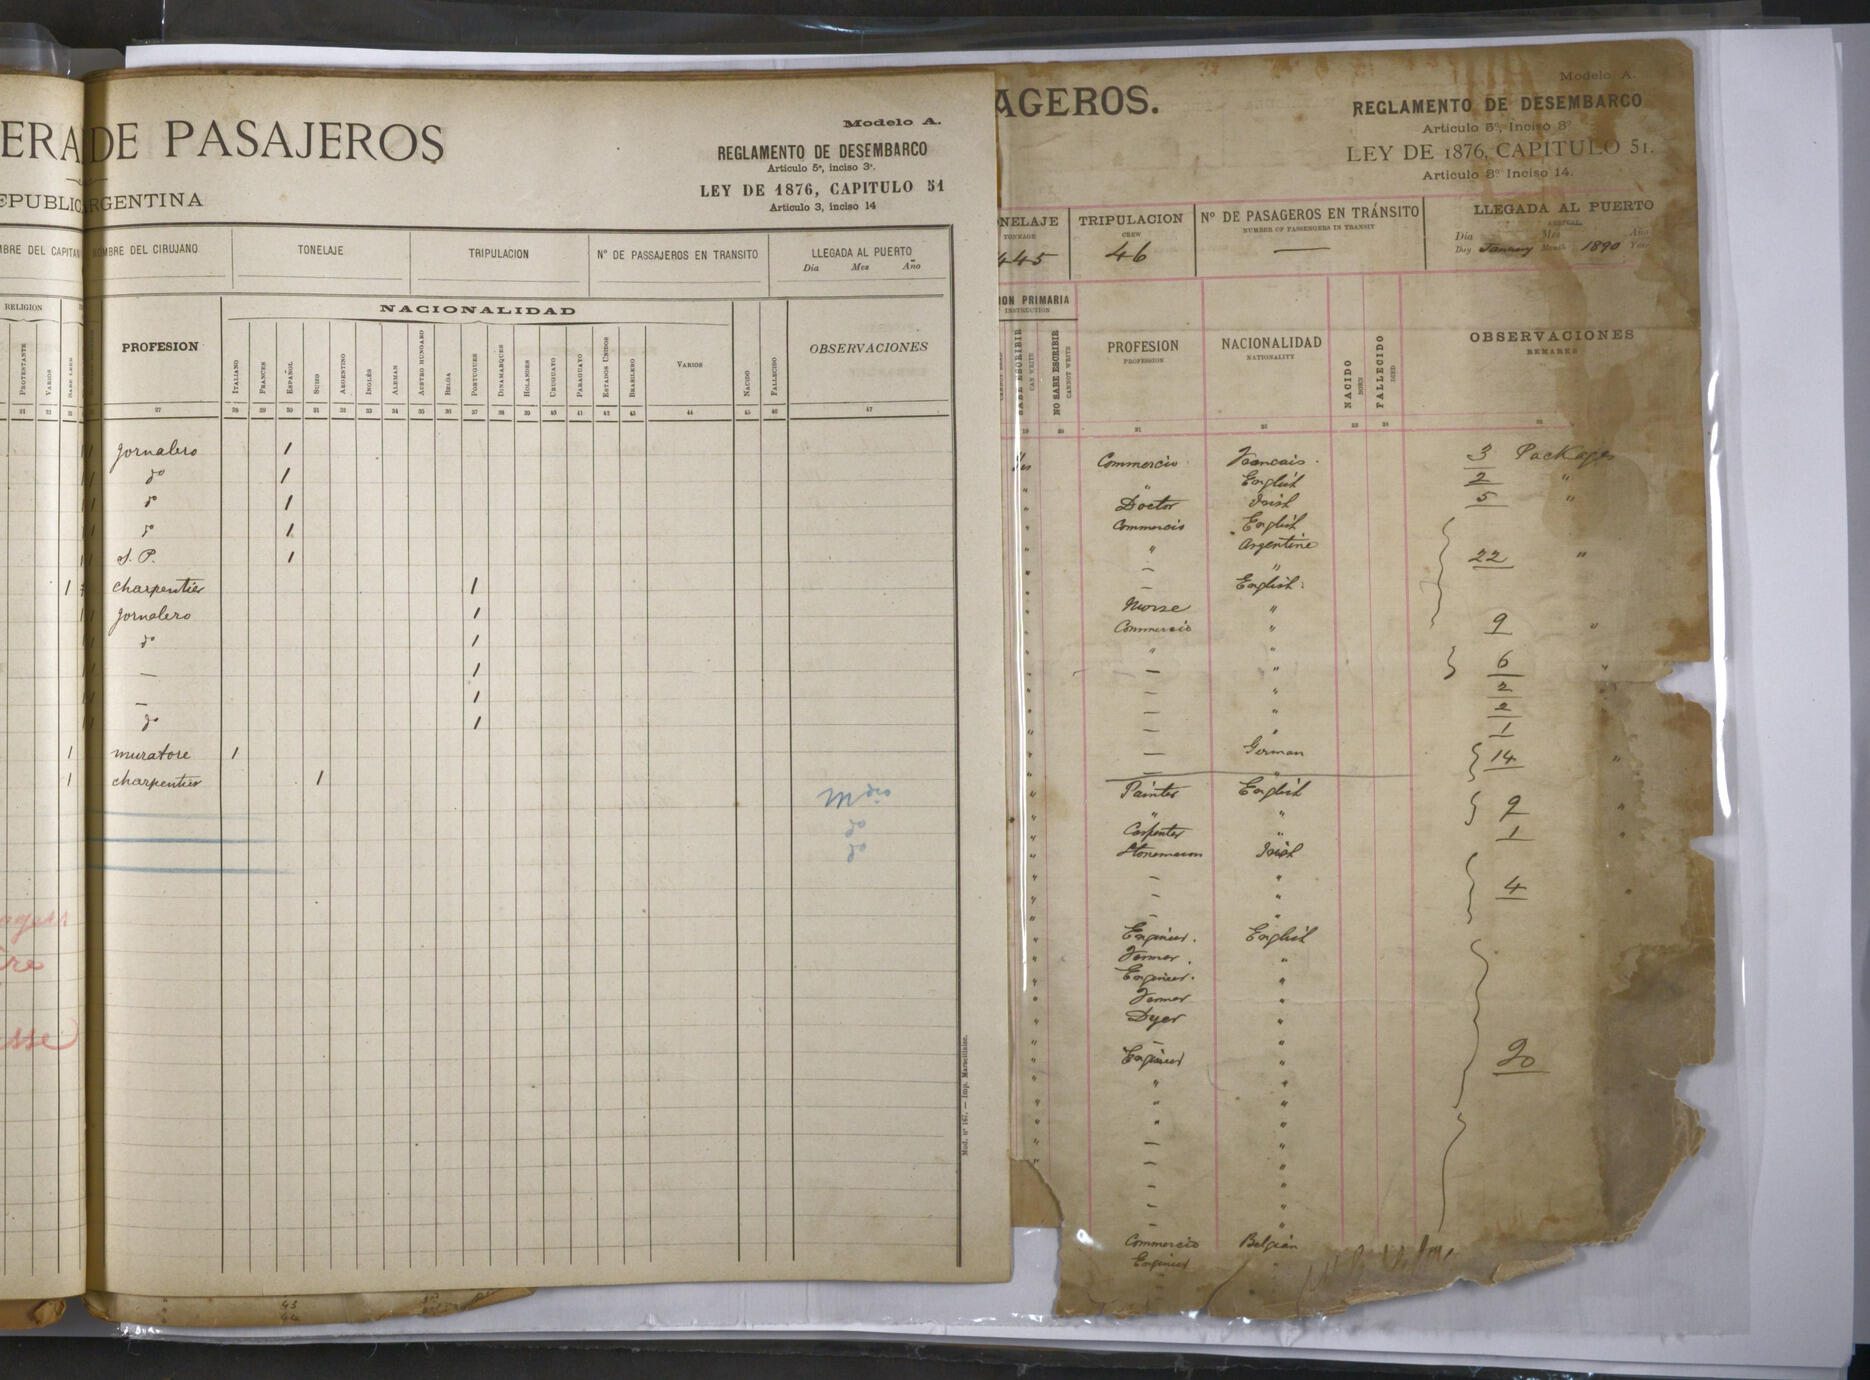 ERA DE PASAJEROS
EPUBLIC ARGENTINA
Modelo A.
REGLAMENTO DE DESEMBARCO
Articulo 5º, inciso 3º.
LEY DE 1876, CAPITULO 51
Articulo 3, inciso 14
MBRE DEL CAPITAN
NOMBRE DEL CIRUJANO
TONELAJE
TRIPULACION
Nº DE PASSAJEROS EN TRANSITO
LLEGADA AL PUERTO
Dia Mes Año
RELIGION
PROTESTANTE
VARIOS
PROFESION
NACIONALIDAD
ITALIANO
FRANCES
ESPAÑOL
SUISO
ARGENTINO
INGLÈS
ALEMAN
AUSTRO HUNGARO
BELGA
PORTUGUES
DINAMARQUES
HOLANDES
URUGUAYO
PARAGUAYO
ESTADOS UNIDOS
BRASILERO
VARIOS
NACIDO
FALLECIDO
OBSERVACIONES
21 22 23 27 28 29 30 31 32 33 34 35 36 37 38 39 40 41 42 43 44 45 46 47
Jornalero 1
dº 1
dº 1
dº 1
S. P. 1
1 charpentier 1
Jornalero 1
dº 1
— 1
— 1
dº 1
1 muratore 1
1 charpentier 1
dº
dº
Mod. nº 167. — Imp. Marseillaise.
AGEROS.
Modelo A.
REGLAMENTO DE DESEMBARCO
Articulo 5º, Inciso 3º
LEY DE 1876, CAPITULO 51.
Articulo 3º Inciso 14.
ONELAJE
TONNAGE
445
TRIPULACION
CREW
46
Nº DE PASAGEROS EN TRÁNSITO
NUMBER OF PASSENGERS IN TRANSIT
—
LLEGADA AL PUERTO
ARRIVAL
Dia Mes Año
Day January Month 1890 Year
ION PRIMARIA
INSTRUCTION
SABE ESCRIBIR
CAN WRITE
NO SABE ESCRIBIR
CANNOT WRITE
PROFESION
PROFESSION
NACIONALIDAD
NATIONALITY
NACIDO
BORN
FALLECIDO
DIED
OBSERVACIONES
REMARKS
19 20 21 22 23 24 25
Yes Commercio Francais 3 Packages
" " English 2 "
" Doctor Irish 5 "
" Commercio English
" " Argentine 22 "
" — "
" — English
" Nurse "
" Commercio " 9 "
" " " 6 "
" — " 2
" — " 2
" — " 1
" — German 14 "
" — "
" Painter English 9 "
" " "
" Carpenter " 1 "
" Stonemason Irish
" — " 4 "
" — "
" — "
" Engineer. English
" Farmer. "
" Engineer. "
" Farmer "
" Dyer "
" — "
" Engineer " 20
" " "
" " "
" " "
" — "
" — "
— "
— "
— "
Commercio Belgian
Engineer "
43
44